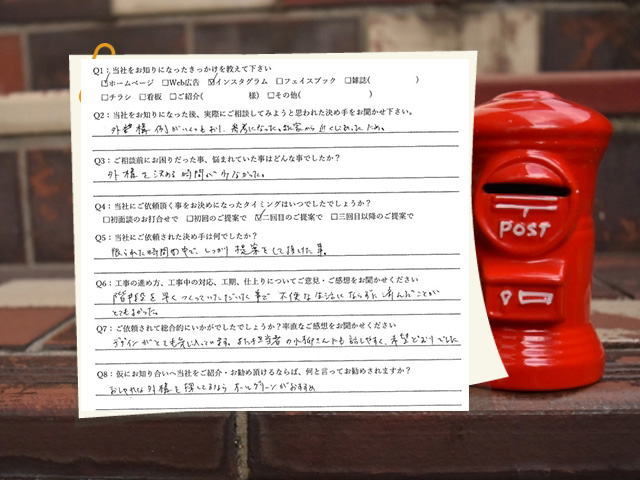 Q1：当社をお知りになったきっかけを教えて下さい
☑ホームページ □Web広告 ☑インスタグラム □フェイスブック □雑誌( )
□チラシ □看板 □ご紹介( 様) □その他( )
Q2：当社をお知りになった後、実際にご相談してみようと思われた決め手をお聞かせ下さい。
外構 例がいくつもあり、参考になった。
Q3：ご相談前にお困りだった事、悩まれていた事はどんな事でしたか？
外構を決める時間が少なかった。
Q4：当社にご依頼頂く事をお決めになったタイミングはいつでしたでしょうか？
□初面談のお打合せで □初回のご提案で ☑二回目のご提案で □三回目以降のご提案で
Q5：当社にご依頼された決め手は何でしたか？
限られた時間の中で、しっかり提案をして頂けた事。
Q6：工事の進め方、工事中の対応、工期、仕上りについてご意見・ご感想をお聞かせください
階段を早くつくっていただいた事で 不便な生活にならずに済んだことが
とてもよかった。
Q7：ご依頼されて総合的にいかがでしたでしょうか？率直なご感想をお聞かせください
デザインがとても気に入っています。また担当者の さんも話しやすく、希望どおりでした
Q8：仮にお知り合いへ当社をご紹介・お勧め頂けるならば、何と言ってお勧めされますか？
おしゃれな外構を探してるなら オールグリーンがおすすめ
POST